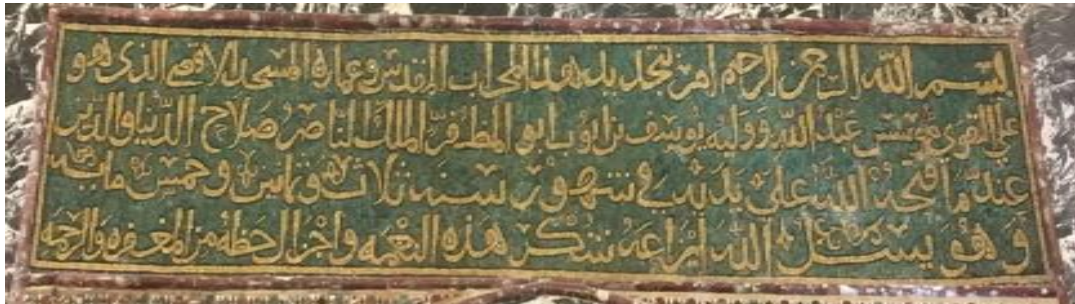 بسم الله الرحمن الرحيم امر بتجديد هذا المحراب المقدس وعمارة المسجد الاقصى الذى هو
على التقوى مؤسس عبد الله ووليه يوسف بن ايوب ابو المظفر الملك الناصر صلاح الدنيا والدين
عندما فتحه الله على يديه في شهور سنة ثلاث وثمانين وخمس مايه
وهو يسئل الله ايزاعه شكر هذه النعمه واجزال حظه من المغفره والرحمه